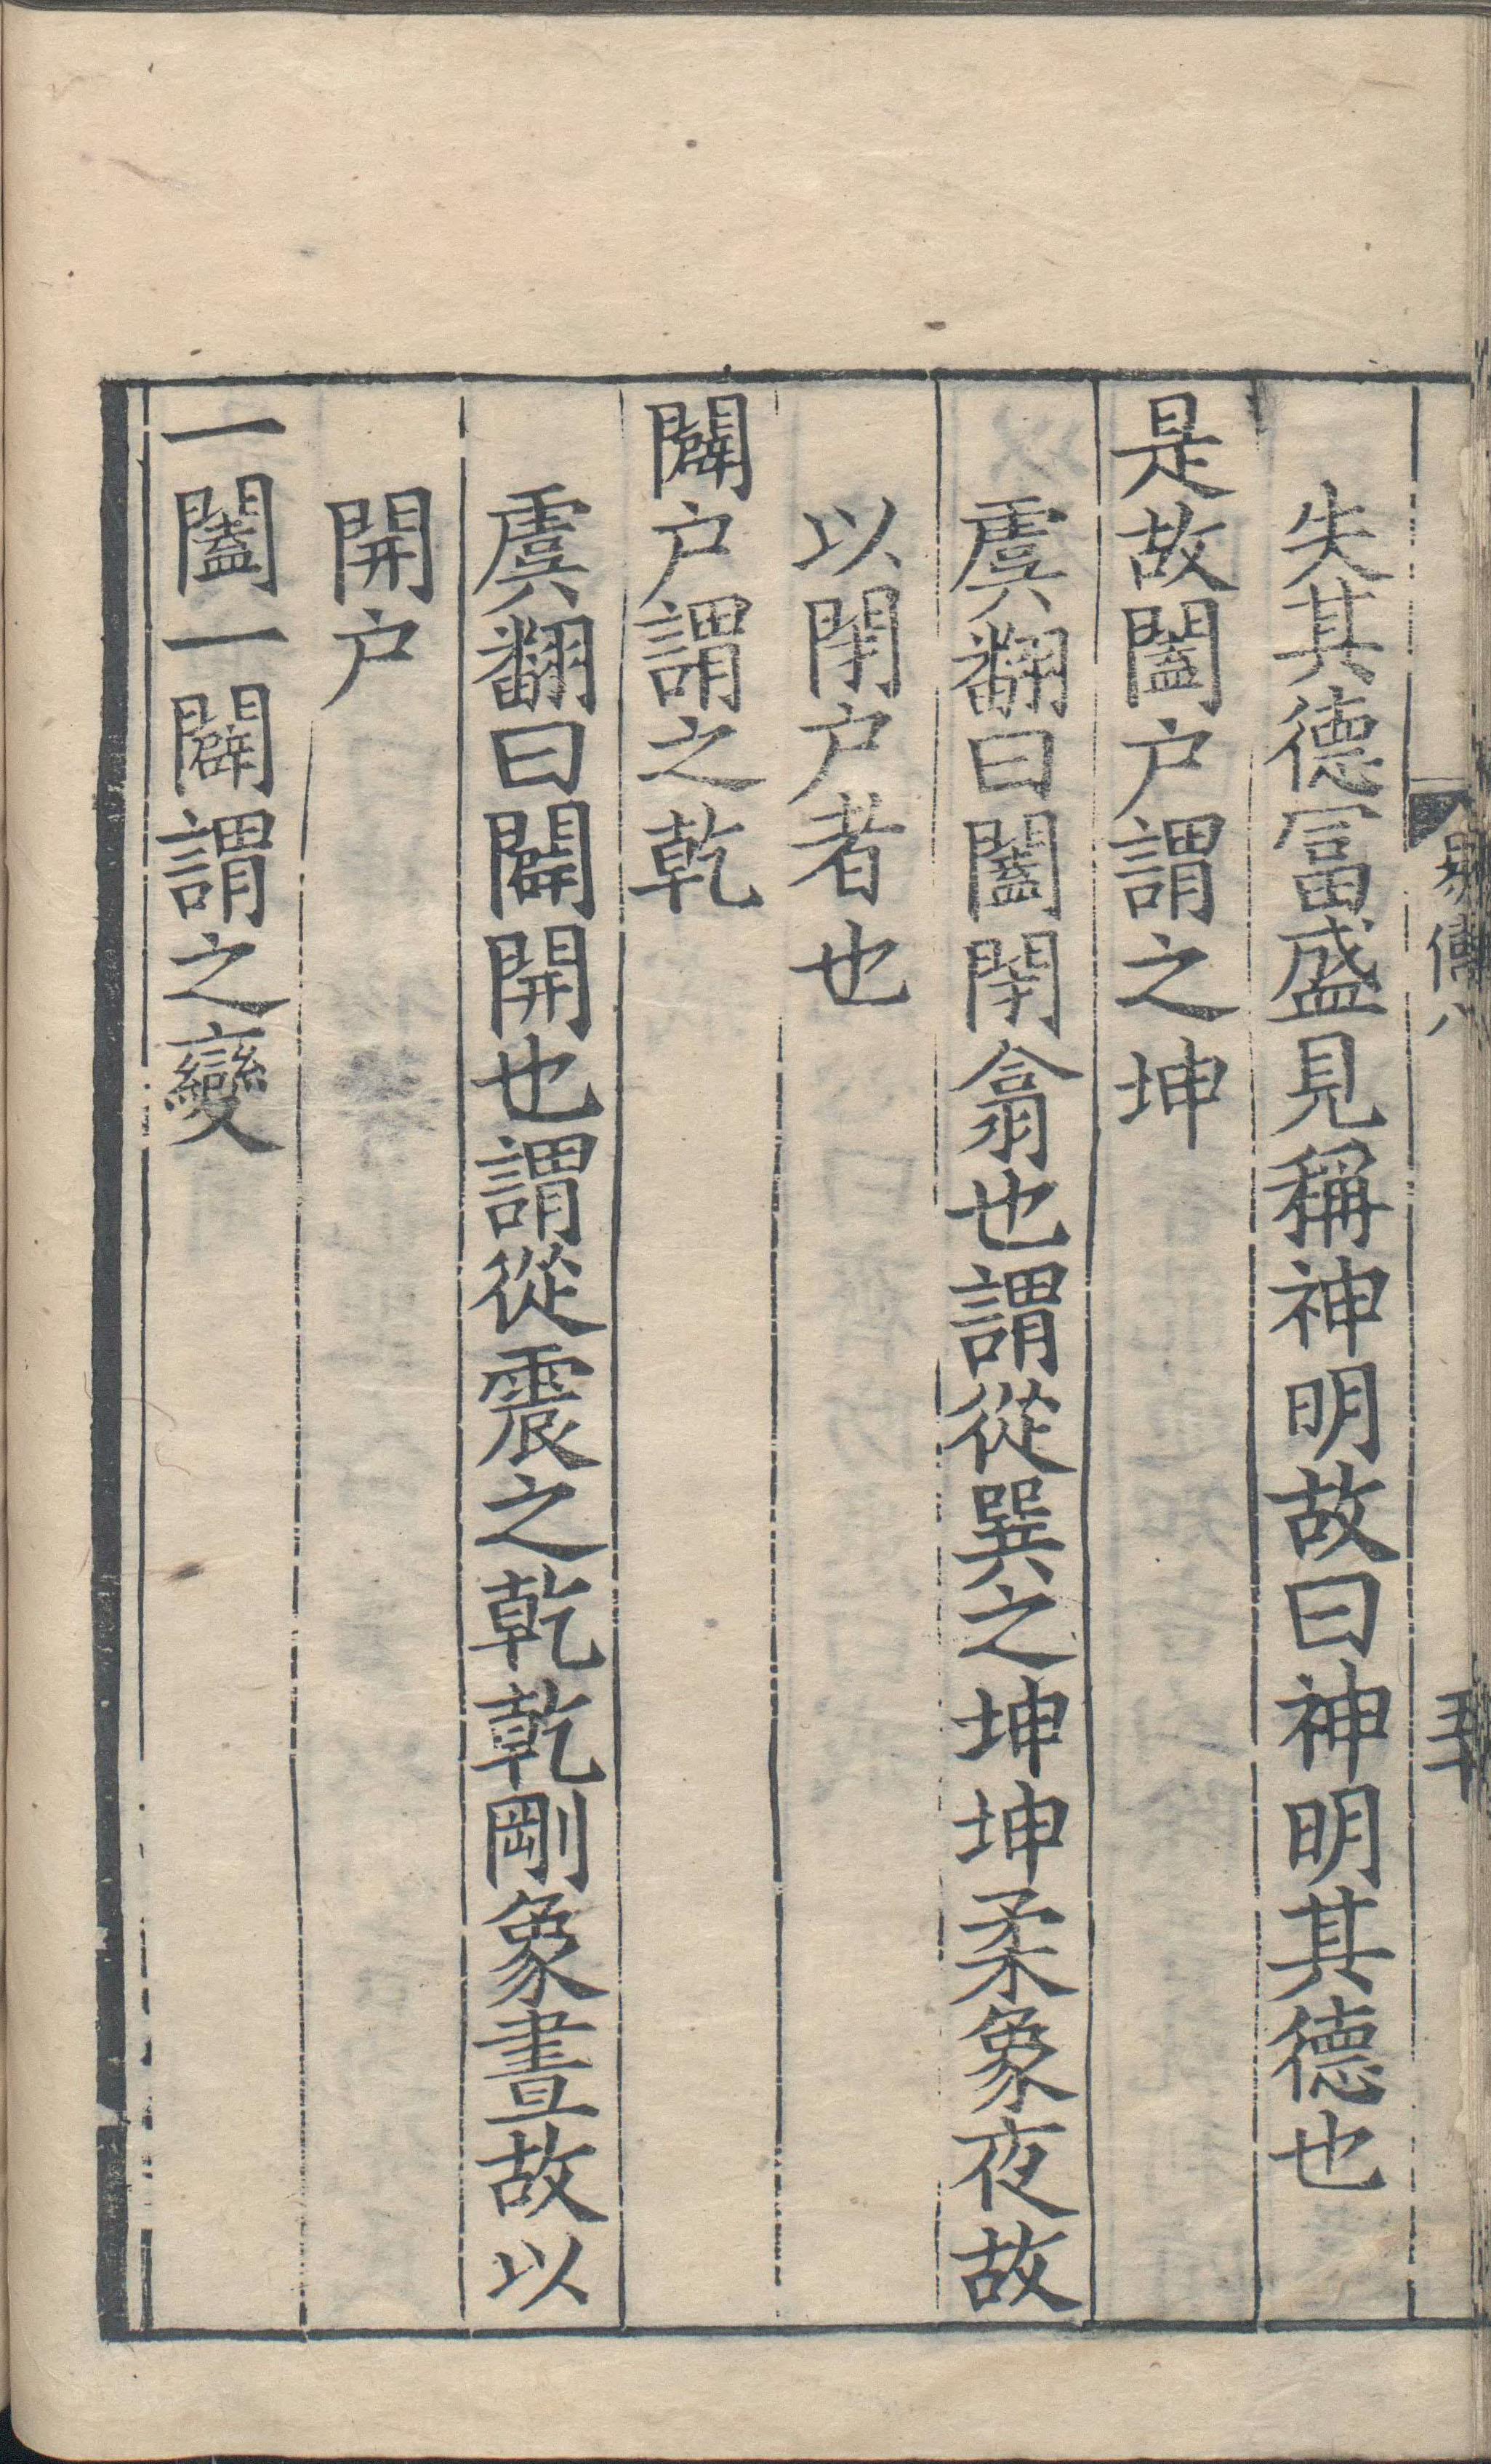 失其德冨盛見稱神明故曰神明其德也
是故闔户謂之坤
虞翻曰闔閇翕也謂從巽之坤坤柔象夜故
以閇户者也
闢户謂之乾
虞翻曰闢開也謂從震之乾乾剛象晝故以
開户
一闔一闢謂之變